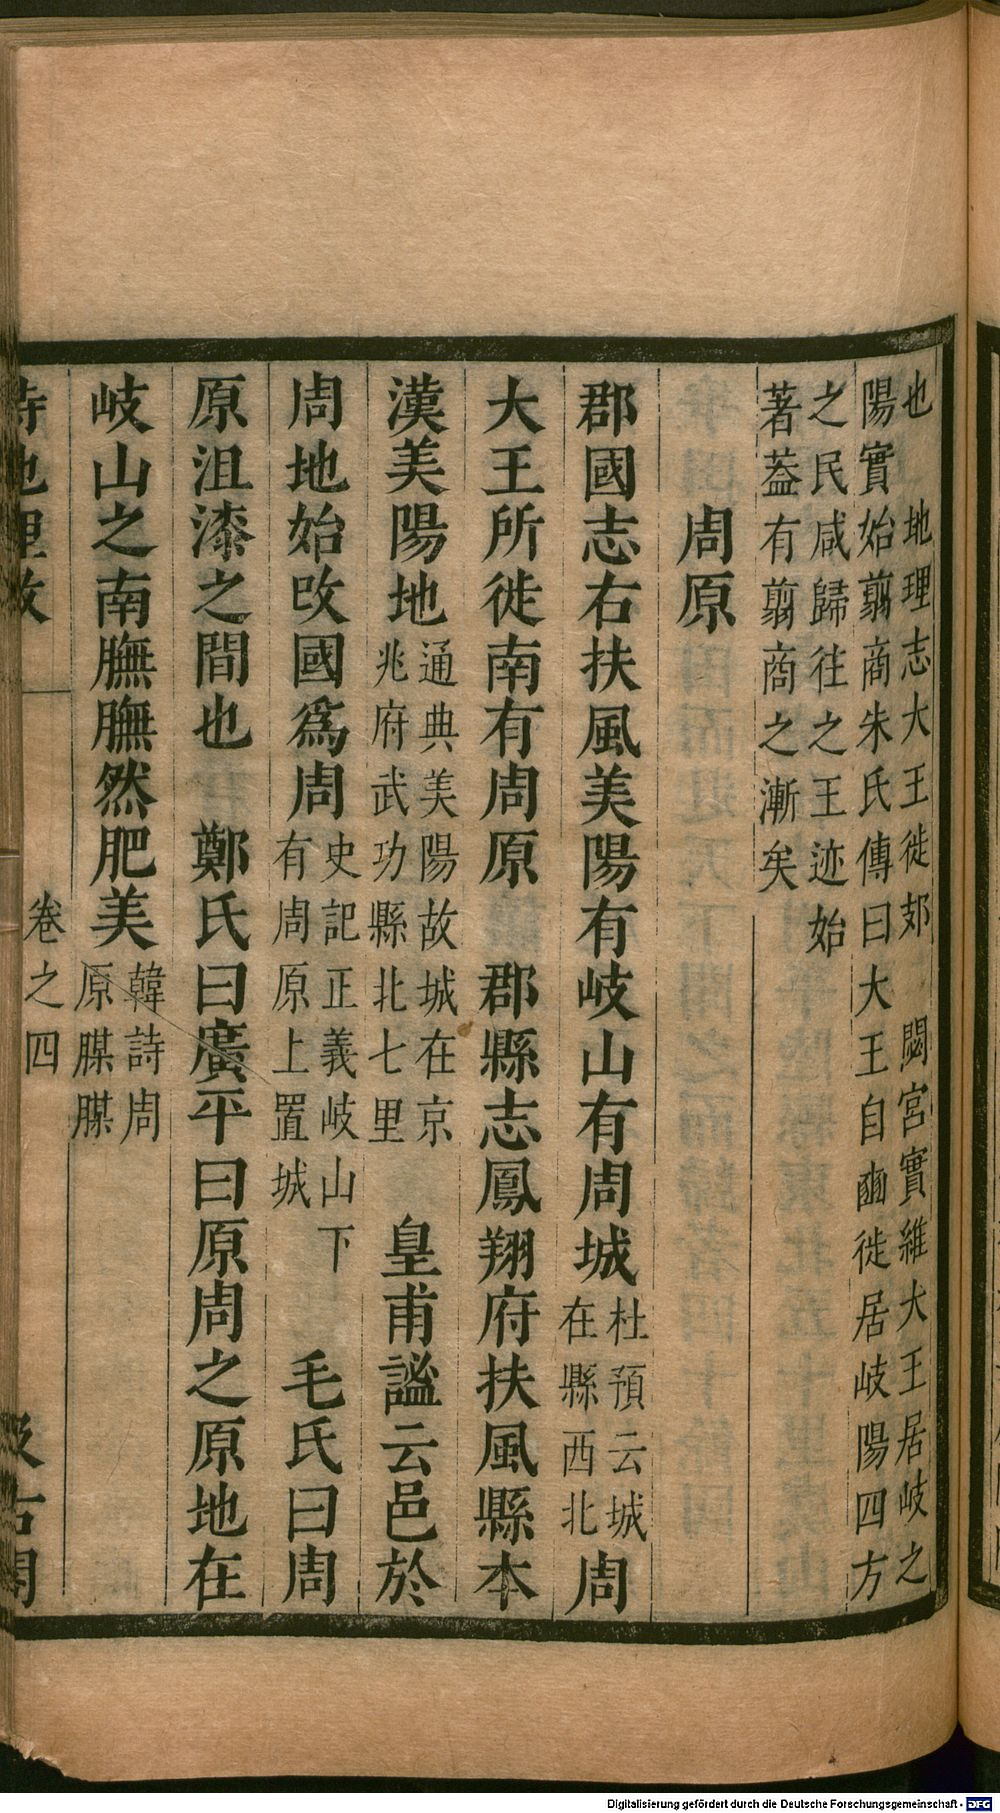 也　地理志大王徙郊　閟宮實維大王居岐之
陽實始翦商朱氏傳曰大王自豳徙居岐陽四方
之民咸歸往之王迹始
著葢有翦商之漸矣
周原
郡國志右扶風美陽有岐山有周城杜預云城在縣西北周
大王所徙南有周原　郡縣志鳳翔府扶風縣本
漢美陽地通典美陽故城在京兆府武功縣北七里　皇甫謐云邑於
周地始改國爲周史記正義岐山下有周原上置城　毛氏曰周
原沮漆之間也　鄭氏曰廣平曰原周之原地在
岐山之南膴膴然肥美韓詩周原腜腜
詩地理攷
卷之四
汲古閣
Digitalisierung gefördert durch die Deutsche Forschungsgemeinschaft - DFG